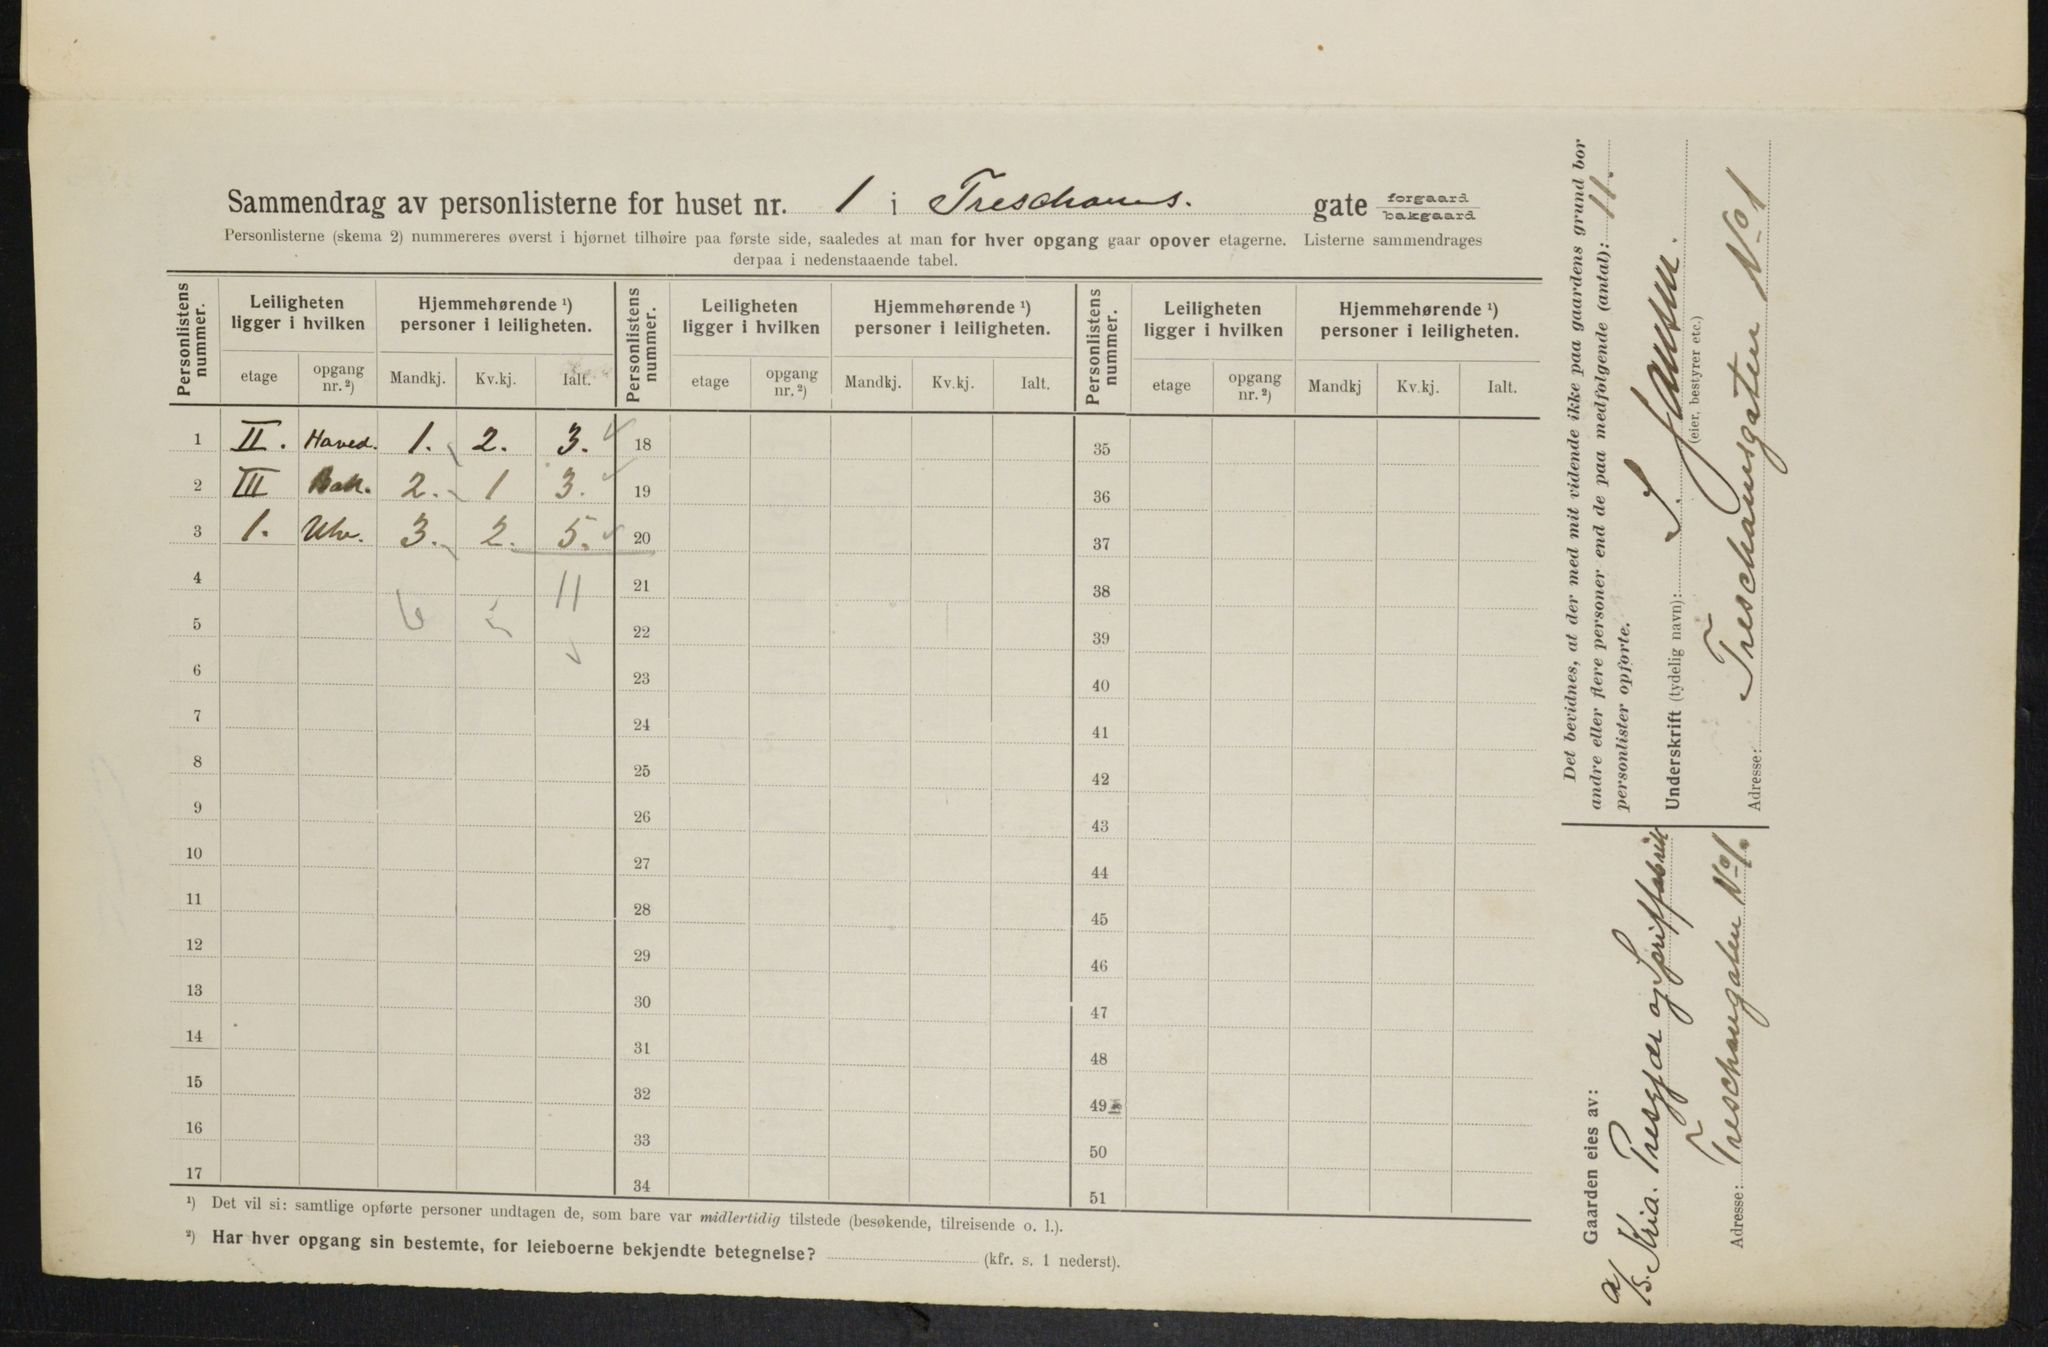 Sammendrag av personlisterne for huset nr. 1 i Treschows. gate forgaard bakgaard
Personlisterne (skema 2) nummereres øverst i hjørnet tilhøire paa første side, saaledes at man for hver opgang gaar opover etagerne. Listerne sammendrages
derpaa i nedenstaaende tabel.
Personlistens nummer. Leiligheten ligger i hvilken Hjemmehørende ¹) personer i leiligheten. Personlistens nummer. Leiligheten ligger i hvilken Hjemmehørende ¹) personer i leiligheten. Personlistens nummer. Leiligheten ligger i hvilken Hjemmehørende ¹) personer i leiligheten.
etage opgang nr. ²) Mandkj. Kv.kj. Ialt. etage opgang nr. ²) Mandkj. Kv.kj. Ialt. etage opgang nr. ²) Mandkj Kv.kj. Ialt.
1 II. Hoved. 1. 2. 3. 18 35
2 III Bak. 2. 1 3. 19 36
3 1. 3. 2. 5. 20 37
4 11 21 38
5 6 5 22 39
6 23 40
7 24 41
8 25 42
9 26 43
10 27 44
11 28 45
12 29 46
13 30 47
14 31 48
15 32 49
16 33 50
17 34 51
¹) Det vil si: samtlige opførte personer undtagen de, som bare var midlertidig tilstede (besøkende, tilreisende o. l.).
²) Har hver opgang sin bestemte, for leieboerne bekjendte betegnelse? (kfr. s. 1 nederst).
Det bevidnes, at der med mit vidende ikke paa gaardens grund bor
andre eller flere personer end de paa medfolgende (antal): 11.
personlister opforte.
Underskrift (tydelig navn): S.
(eier, bestyrer etc.)
Adresse: Treschowsgaten No 1
Gaarden eies av:
A/S. Kria. Presgjær og Spritfabrik
Adresse: Treschowsgaten No 1.